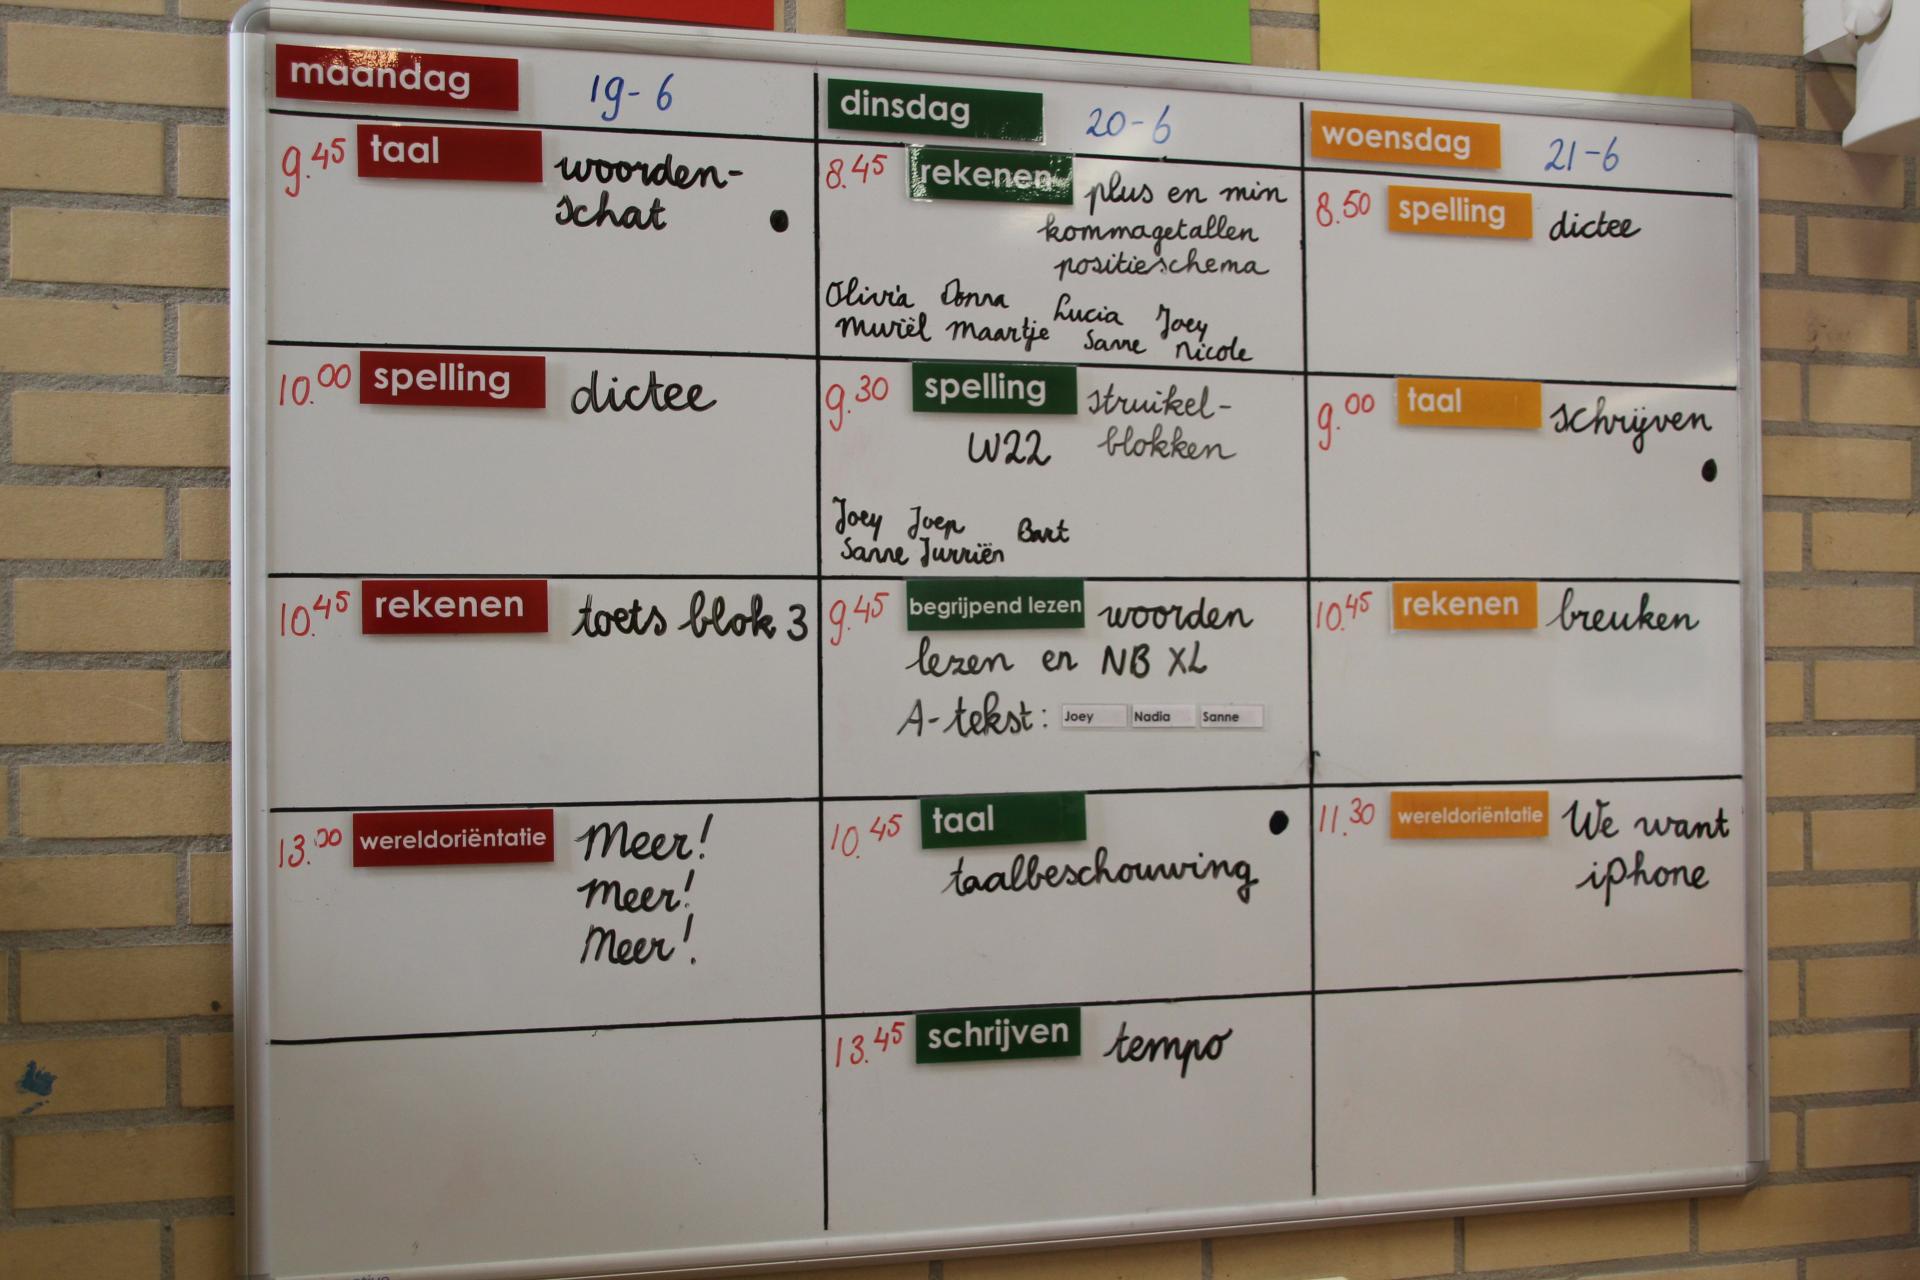 maandag 19-6
9.45 taal woorden-
schat
10.00 spelling dictee
10.45 rekenen toets blok 3
13.00 wereldoriëntatie Meer!
Meer!
Meer!
dinsdag 20-6
8.45 rekenen plus en min
kommagetallen
positieschema
Olivia Donna Lucia Joey
Muriël Maartje Sanne Nicole
9.30 spelling struikel-
W22 blokken
Joey Joep Bart
Sanne Jurriën
9.45 begrijpend lezen woorden
lezen en NB XL
A-tekst: Joey Nadia Sanne
10.45 taal
taalbeschouwing
13.45 schrijven tempo
woensdag 21-6
8.50 spelling dictee
9.00 taal schrijven
10.45 rekenen breuken
11.30 wereldoriëntatie We want
iphone